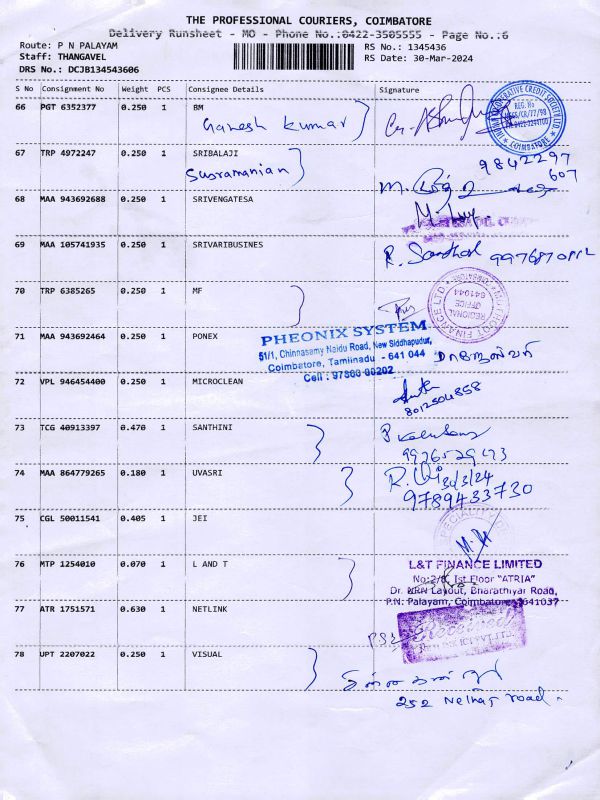 THE PROFESSIONAL COURIERS, COIMBATORE
Delivery Runsheet - MO - Phone No.:0422-3505555 - Page No.:6
Route: P N PALAYAM
RS No.: 1345436
Staff: THANGAVEL
RS Date: 30-Mar-2024
DRS No.: DCJB134543606
S No Consignment No Weight PCS Consignee Details Signature
66 PGT 6352377 0.250 1 BM
Ganesh Kumar
COIMBATORE
67 TRP 4972247 0.250 1 SRIBALAJI
Susramanian
9842297
607
68 MAA 943692688 0.250 1 SRIVENGATESA
69 MAA 105741935 0.250 1 SRIVARIBUSINES
R. Santhosh
70 TRP 6385265 0.250 1 MF
REGIONAL
OFFICE
641044
71 MAA 943692464 0.250 1 PONEX
PHEONIX SYSTEM
51/1, Chinnasamy Naidu Road, New Siddhapudur,
Coimbatore, Tamilnadu - 641 044
Cell : 97860 00202
72 VPL 946454400 0.250 1 MICROCLEAN
8012504858
73 TCG 40913397 0.470 1 SANTHINI
74 MAA 864779265 0.180 1 UVASRI
30/3/24
9789433730
75 CGL 50011541 0.405 1 JEI
76 MTP 1254010 0.070 1 L AND T
L&T FINANCE LIMITED
No:2/8, Ist Floor "ATRIA"
Dr. NRN Layout, Bharathiyar Road,
P.N. Palayam, Coimbatore-641037
77 ATR 1751571 0.630 1 NETLINK
Received
78 UPT 2207022 0.250 1 VISUAL
252 Nehru road